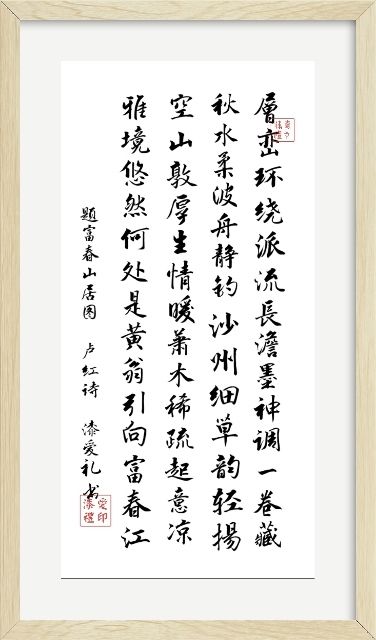 層峦环绕派流長澹墨神调一卷藏
秋水柔波舟静钓沙州细草韵轻揚
空山敦厚生情暖萧木稀疏起意凉
雅境悠然何处是黄翁引向富春江
题富春山居图 卢红诗 漆爱礼书